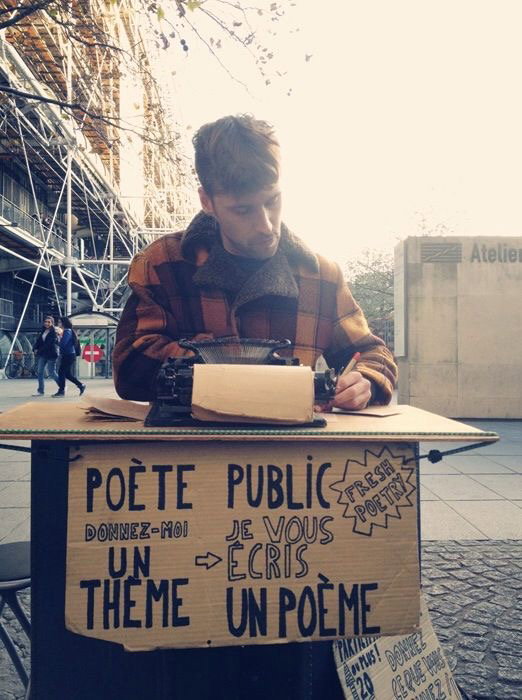 Atelier
POÈTE PUBLIC
FRESH
POETRY
DONNEZ-MOI JE VOUS
UN → ÉCRIS
THÈME UN POÈME
OU PLUS!
DONNEZ
CE QUE VOUS
20